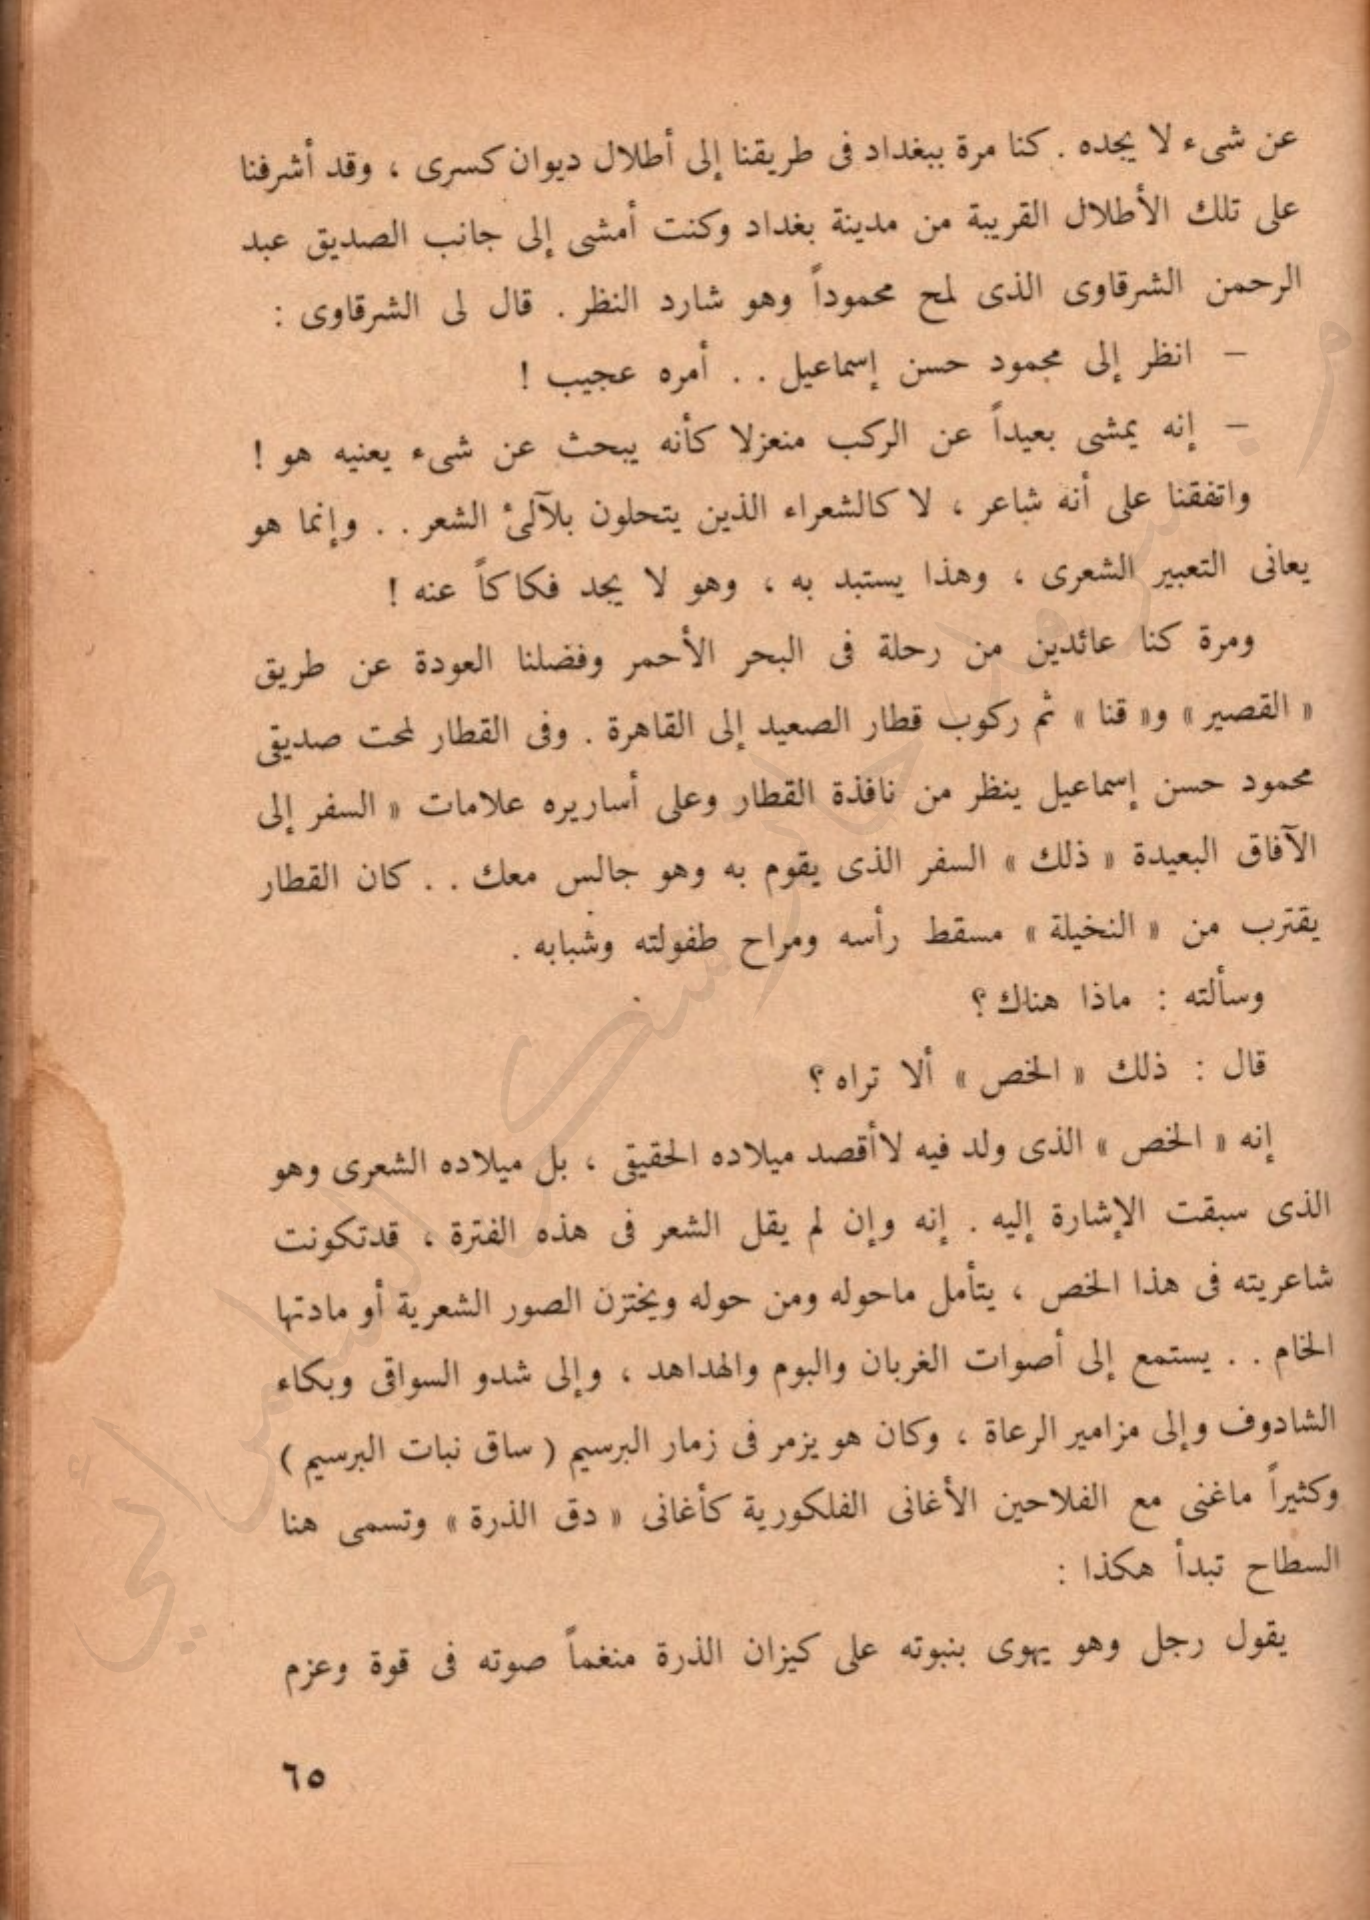 عن شىء لا يجده . كنا مرة ببغداد فى طريقنا إلى أطلال ديوان كسرى ، وقد أشرفنا
على تلك الأطلال القريبة من مدينة بغداد وكنت أمشى إلى جانب الصديق عبد
الرحمن الشرقاوى الذى لمح محموداً وهو شارد النظر . قال لى الشرقاوى :
– انظر إلى محمود حسن إسماعيل . . أمره عجيب !
– إنه يمشى بعيداً عن الركب منعزلا كأنه يبحث عن شىء يعنيه هو !
واتفقنا على أنه شاعر ، لا كالشعراء الذين يتحلون بلآلئ الشعر . . وإنما هو
يعانى التعبير الشعرى ، وهذا يستبد به ، وهو لا يجد فكاكاً عنه !
ومرة كنا عائدين من رحلة فى البحر الأحمر وفضلنا العودة عن طريق
« القصير » و« قنا » ثم ركوب قطار الصعيد إلى القاهرة . وفى القطار لمحت صديقى
محمود حسن إسماعيل ينظر من نافذة القطار وعلى أساريره علامات « السفر إلى
الآفاق البعيدة « ذلك » السفر الذى يقوم به وهو جالس معك . . كان القطار
يقترب من « النخيلة » مسقط رأسه ومراح طفولته وشبابه .
وسألته : ماذا هناك ؟
قال : ذلك « الخص » ألا تراه ؟
إنه « الخص » الذى ولد فيه لاأقصد ميلاده الحقيقى ، بل ميلاده الشعرى وهو
الذى سبقت الإشارة إليه . إنه وإن لم يقل الشعر فى هذه الفترة ، قدتكونت
شاعريته فى هذا الخص ، يتأمل ماحوله ومن حوله ويختزن الصور الشعرية أو مادتها
الخام . . يستمع إلى أصوات الغربان والبوم والهداهد ، وإلى شدو السواقى وبكاء
الشادوف وإلى مزامير الرعاة ، وكان هو يزمر فى زمار البرسيم ( ساق نبات البرسيم )
وكثيراً ماغنى مع الفلاحين الأغانى الفلكورية كأغانى « دق الذرة » وتسمى هنا
السطاح تبدأ هكذا :
يقول رجل وهو يهوى بنبوته على كيزان الذرة منغماً صوته فى قوة وعزم
٦٥